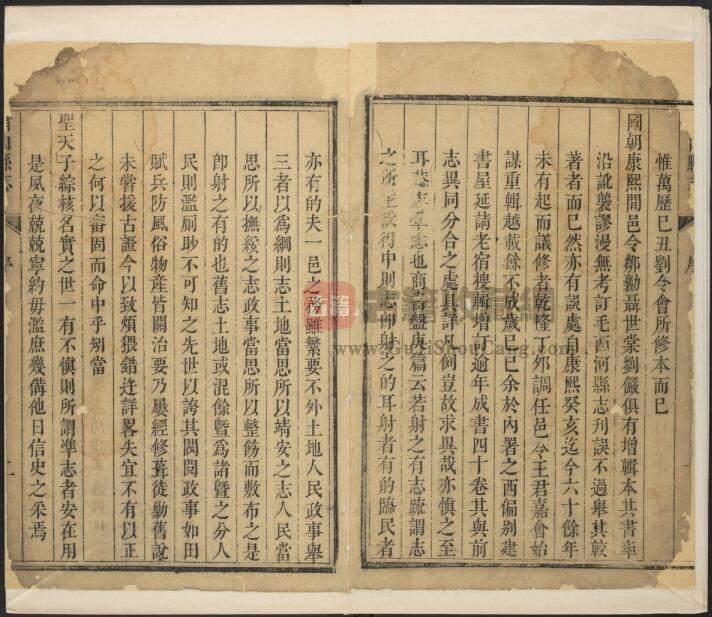 惟萬歷己丑劉令會所修本而已
國朝康熙間邑令鄒勷聶世棠劉儼俱有增輯本其書率
沿訛襲謬漫無考訂毛西河縣志刋誤不過舉其較
著者而已然亦有誤處自康熙癸亥迄今六十餘年
未有起而議修者乾隆丁夘調任邑令王君嘉會始
謀重輯越載餘不成歲己巳余於內署之西偏别建
書屋延請老宿搜輯增訂逾年成書四十卷其與前
志異同分合之處具詳凡例豈故求異哉亦慎之至
耳 志也商書盤庚篇云若射之有志疏謂志
之所主欲得中則志即射之的耳射者有的臨民者
亦有的夫一邑之務雖繁要不外土地人民政事舉
三者以爲綱則志土地當思所以靖安之志人民當
思所以撫綏之志政事當思所以整飭而敷布之是
卽射之有的也舊志土地或混餘曁爲諸曁之分人
民則濫厠眇不可知之先世以誇其閥閱政事如田
賦兵防風俗物産皆關治要乃屢經修葺徒勦舊說
未嘗援古證今以致煩猥錯迕詳畧失宜不有以正
之何以審固而命中乎矧當
聖天子綜核名實之世一有不愼則所謂凖志者安在用
是夙夜兢兢寧約毋濫庶幾備他日信史之采焉
山縣志
序
二
古籍收藏網
www.GuJiShouCang.com